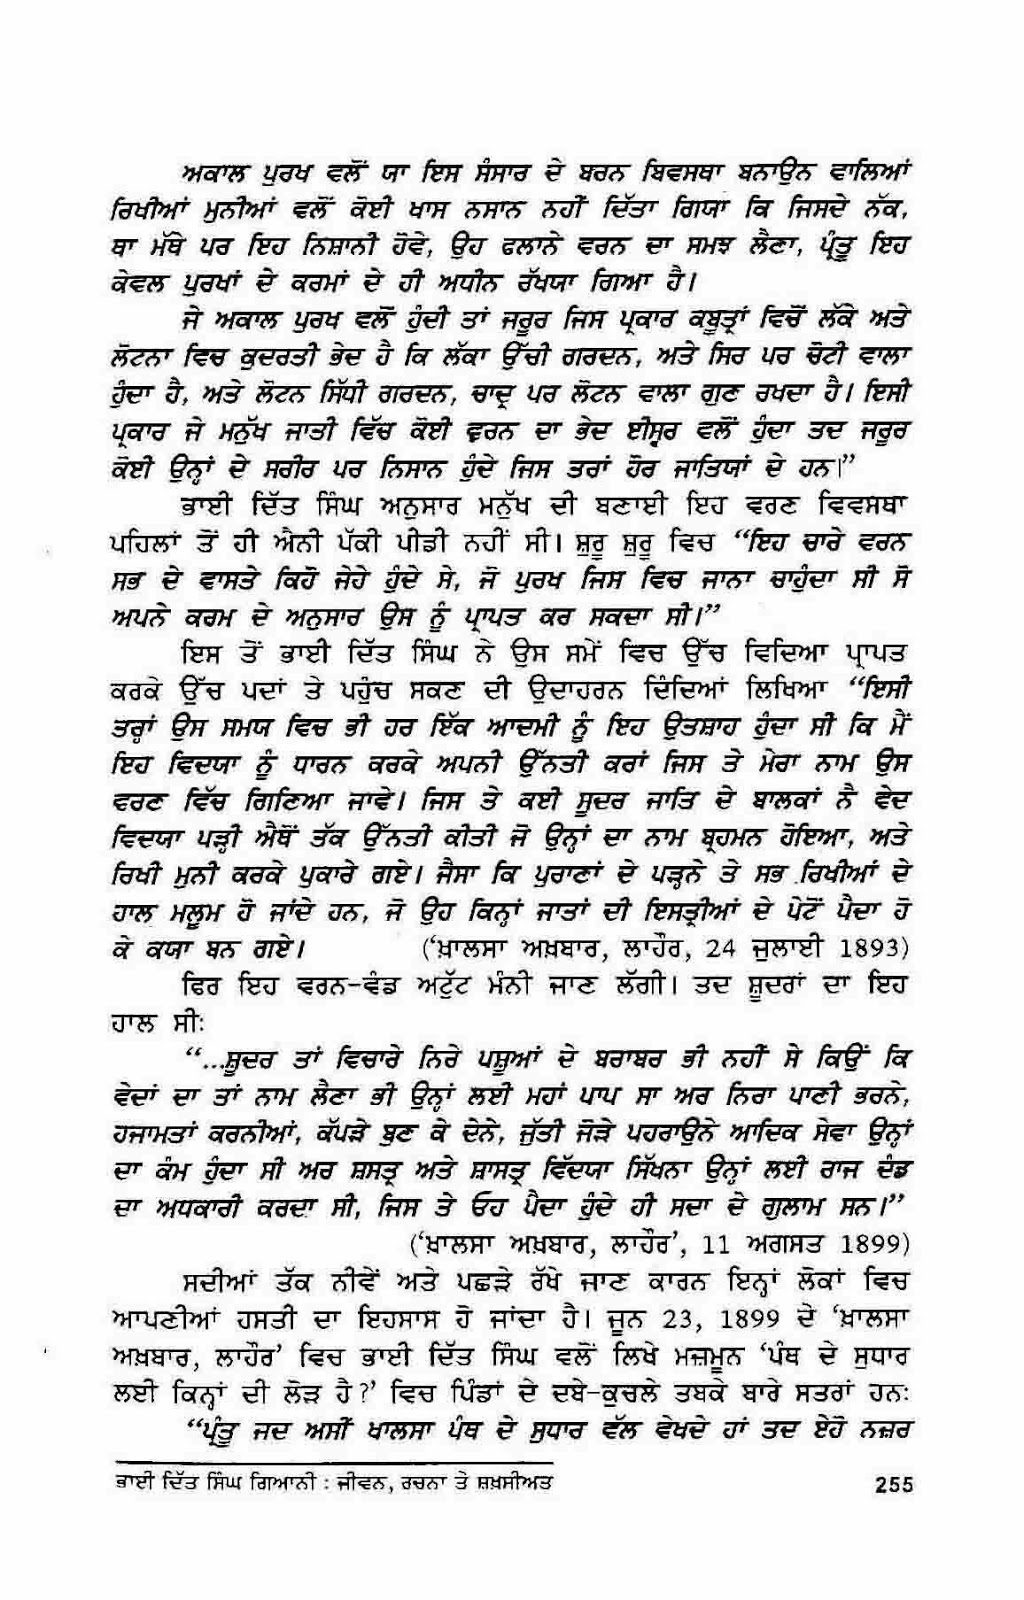 ਅਕਾਲ ਪੁਰਖ ਵਲੋਂ ਯਾ ਇਸ ਸੰਸਾਰ ਦੇ ਬਰਨ ਬਿਵਸਥਾ ਬਨਾਉਨ ਵਾਲਿਆਂ
ਰਿਖੀਆਂ ਮੁਨੀਆਂ ਵਲੋਂ ਕੋਈ ਖਾਸ ਨਸਾਨ ਨਹੀਂ ਦਿੱਤਾ ਗਿਯਾ ਕਿ ਜਿਸਦੇ ਨੱਕ,
ਥਾ ਮੱਥੇ ਪਰ ਇਹ ਨਿਸ਼ਾਨੀ ਹੋਵੇ, ਉਹ ਫਲਾਨੇ ਵਰਨ ਦਾ ਸਮਝ ਲੈਣਾ, ਪ੍ਰੰਤੂ ਇਹ
ਕੇਵਲ ਪੁਰਖਾਂ ਦੇ ਕਰਮਾਂ ਦੇ ਹੀ ਅਧੀਨ ਰੱਖਯਾ ਗਿਆ ਹੈ।
ਜੇ ਅਕਾਲ ਪੁਰਖ ਵਲੋਂ ਹੁੰਦੀ ਤਾਂ ਜਰੂਰ ਜਿਸ ਪ੍ਰਕਾਰ ਕਬੂਤ੍ਰਾਂ ਵਿਚੋਂ ਲੱਕੇ ਅਤੇ
ਲੋਟਨਾ ਵਿਚ ਕੁਦਰਤੀ ਭੇਦ ਹੈ ਕਿ ਲੱਕਾ ਉੱਚੀ ਗਰਦਨ, ਅਤੇ ਸਿਰ ਪਰ ਚੋਟੀ ਵਾਲਾ
ਹੁੰਦਾ ਹੈ, ਅਤੇ ਲੋਟਨ ਸਿੱਧੀ ਗਰਦਨ, ਚਾਦ੍ਰ ਪਰ ਲੋਟਨ ਵਾਲਾ ਗੁਣ ਰਖਦਾ ਹੈ। ਇਸੀ
ਪ੍ਰਕਾਰ ਜੇ ਮਨੁੱਖ ਜਾਤੀ ਵਿੱਚ ਕੋਈ ਵਰਨ ਦਾ ਭੇਦ ਈਸ੍ਵਰ ਵਲੋਂ ਹੁੰਦਾ ਤਦ ਜਰੂਰ
ਕੋਈ ਉਨ੍ਹਾਂ ਦੇ ਸਰੀਰ ਪਰ ਨਿਸਾਨ ਹੁੰਦੇ ਜਿਸ ਤਰਾਂ ਹੋਰ ਜਾਤਿਯਾਂ ਦੇ ਹਨ।”
ਭਾਈ ਦਿੱਤ ਸਿੰਘ ਅਨੁਸਾਰ ਮਨੁੱਖ ਦੀ ਬਣਾਈ ਇਹ ਵਰਣ ਵਿਵਸਥਾ
ਪਹਿਲਾਂ ਤੋਂ ਹੀ ਐਨੀ ਪੱਕੀ ਪੀਡੀ ਨਹੀਂ ਸੀ। ਸ਼ੁਰੂ ਸ਼ੁਰੂ ਵਿਚ “ਇਹ ਚਾਰੇ ਵਰਨ
ਸਭ ਦੇ ਵਾਸਤੇ ਕਿਹੋ ਜੇਹੇ ਹੁੰਦੇ ਸੇ, ਜੋ ਪੁਰਖ ਜਿਸ ਵਿਚ ਜਾਨਾ ਚਾਹੁੰਦਾ ਸੀ ਸੋ
ਅਪਨੇ ਕਰਮ ਦੇ ਅਨੁਸਾਰ ਉਸ ਨੂੰ ਪ੍ਰਾਪਤ ਕਰ ਸਕਦਾ ਸੀ।”
ਇਸ ਤੋਂ ਭਾਈ ਦਿੱਤ ਸਿੰਘ ਨੇ ਉਸ ਸਮੇਂ ਵਿਚ ਉੱਚ ਵਿਦਿਆ ਪ੍ਰਾਪਤ
ਕਰਕੇ ਉੱਚ ਪਦਾਂ ਤੇ ਪਹੁੰਚ ਸਕਣ ਦੀ ਉਦਾਹਰਨ ਦਿੰਦਿਆਂ ਲਿਖਿਆ “ਇਸੀ
ਤਰ੍ਹਾਂ ਉਸ ਸਮਯ ਵਿਚ ਭੀ ਹਰ ਇੱਕ ਆਦਮੀ ਨੂੰ ਇਹ ਉਤਸ਼ਾਹ ਹੁੰਦਾ ਸੀ ਕਿ ਮੈਂ
ਇਹ ਵਿਦਯਾ ਨੂੰ ਧਾਰਨ ਕਰਕੇ ਅਪਨੀ ਉੱਨਤੀ ਕਰਾਂ ਜਿਸ ਤੇ ਮੇਰਾ ਨਾਮ ਉਸ
ਵਰਣ ਵਿੱਚ ਗਿਣਿਆ ਜਾਵੇ। ਜਿਸ ਤੇ ਕਈ ਸੂਦਰ ਜਾਤਿ ਦੇ ਬਾਲਕਾਂ ਨੈ ਵੇਦ
ਵਿਦਯਾ ਪੜ੍ਹੀ ਐਥੋਂ ਤੱਕ ਉੱਨਤੀ ਕੀਤੀ ਜੋ ਉਨ੍ਹਾਂ ਦਾ ਨਾਮ ਬ੍ਰਹਮਨ ਹੋਇਆ, ਅਤੇ
ਰਿਖੀ ਮੁਨੀ ਕਰਕੇ ਪੁਕਾਰੇ ਗਏ। ਜੈਸਾ ਕਿ ਪੁਰਾਣਾਂ ਦੇ ਪੜ੍ਹਨੇ ਤੇ ਸਭ ਰਿਖੀਆਂ ਦੇ
ਹਾਲ ਮਲੂਮ ਹੋ ਜਾਂਦੇ ਹਨ, ਜੋ ਉਹ ਕਿਨ੍ਹਾਂ ਜਾਤਾਂ ਦੀ ਇਸਤ੍ਰੀਆਂ ਦੇ ਪੇਟੋਂ ਪੈਦਾ ਹੋ
ਕੇ ਕਯਾ ਬਨ ਗਏ। (‘ਖ਼ਾਲਸਾ ਅਖ਼ਬਾਰ, ਲਾਹੌਰ, 24 ਜੁਲਾਈ 1893)
ਫਿਰ ਇਹ ਵਰਨ-ਵੰਡ ਅਟੁੱਟ ਮੰਨੀ ਜਾਣ ਲੱਗੀ। ਤਦ ਸ਼ੂਦਰਾਂ ਦਾ ਇਹ
ਹਾਲ ਸੀ:
“...ਸ਼ੂਦਰ ਤਾਂ ਵਿਚਾਰੇ ਨਿਰੇ ਪਸ਼ੂਆਂ ਦੇ ਬਰਾਬਰ ਭੀ ਨਹੀਂ ਸੇ ਕਿਉਂ ਕਿ
ਵੇਦਾਂ ਦਾ ਤਾਂ ਨਾਮ ਲੈਣਾ ਭੀ ਉਨ੍ਹਾਂ ਲਈ ਮਹਾਂ ਪਾਪ ਸਾ ਅਰ ਨਿਰਾ ਪਾਣੀ ਭਰਨੇ,
ਹਜਾਮਤਾਂ ਕਰਨੀਆਂ, ਕੱਪੜੇ ਬੁਣ ਕੇ ਦੇਨੇ, ਜੁੱਤੀ ਜੋੜੇ ਪਹਰਾਉਨੇ ਆਦਿਕ ਸੇਵਾ ਉਨ੍ਹਾਂ
ਦਾ ਕੰਮ ਹੁੰਦਾ ਸੀ ਅਰ ਸ਼ਸਤ੍ਰ ਅਤੇ ਸ਼ਾਸਤ੍ਰ ਵਿੱਦਯਾ ਸਿੱਖਨਾ ਉਨ੍ਹਾਂ ਲਈ ਰਾਜ ਦੰਡ
ਦਾ ਅਧਕਾਰੀ ਕਰਦਾ ਸੀ, ਜਿਸ ਤੇ ਓਹ ਪੈਦਾ ਹੁੰਦੇ ਹੀ ਸਦਾ ਦੇ ਗੁਲਾਮ ਸਨ।”
(‘ਖ਼ਾਲਸਾ ਅਖ਼ਬਾਰ, ਲਾਹੌਰ’, 11 ਅਗਸਤ 1899)
ਸਦੀਆਂ ਤੱਕ ਨੀਵੇਂ ਅਤੇ ਪਛੜੇ ਰੱਖੇ ਜਾਣ ਕਾਰਨ ਇਨ੍ਹਾਂ ਲੋਕਾਂ ਵਿਚ
ਆਪਣੀਆਂ ਹਸਤੀ ਦਾ ਇਹਸਾਸ ਹੋ ਜਾਂਦਾ ਹੈ। ਜੂਨ 23, 1899 ਦੇ ‘ਖ਼ਾਲਸਾ
ਅਖ਼ਬਾਰ, ਲਾਹੌਰ’ ਵਿਚ ਭਾਈ ਦਿੱਤ ਸਿੰਘ ਵਲੋਂ ਲਿਖੇ ਮਜ਼ਮੂਨ ‘ਪੰਥ ਦੇ ਸੁਧਾਰ
ਲਈ ਕਿਨ੍ਹਾਂ ਦੀ ਲੋੜ ਹੈ?’ ਵਿਚ ਪਿੰਡਾਂ ਦੇ ਦਬੇ-ਕੁਚਲੇ ਤਬਕੇ ਬਾਰੇ ਸਤਰਾਂ ਹਨ:
“ਪ੍ਰੰਤੂ ਜਦ ਅਸੀਂ ਖਾਲਸਾ ਪੰਥ ਦੇ ਸੁਧਾਰ ਵੱਲ ਵੇਖਦੇ ਹਾਂ ਤਦ ਏਹੋ ਨਜ਼ਰ
ਭਾਈ ਦਿੱਤ ਸਿੰਘ ਗਿਆਨੀ : ਜੀਵਨ, ਰਚਨਾ ਤੇ ਸ਼ਖ਼ਸੀਅਤ 255